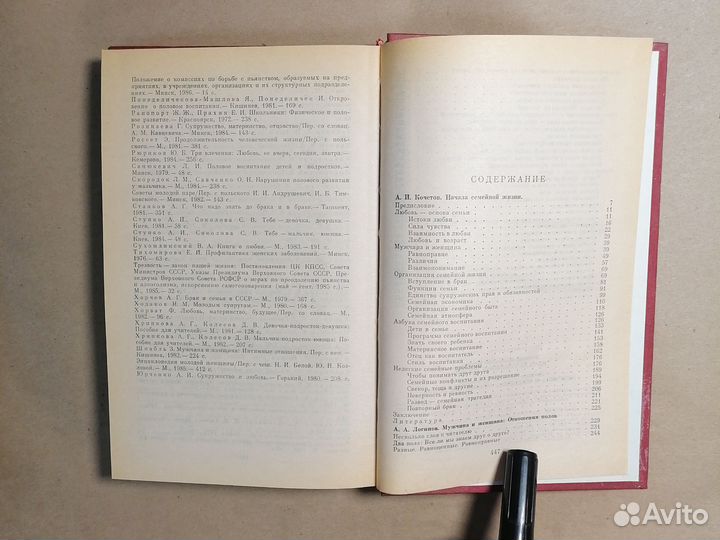 Положение о комиссиях по борьбе с пьянством, образуемых на пред-
приятиях, в учреждениях, организациях и их структурных подразделе-
ниях.— Минск, 1986.— 14 с.
Понеделичекова-Машлова Я., Понеделичес И. Открове-
о половом воспитании.— Кишинев, 1981.— 169 с.
Рапопорт Ж. Ж., Прахин Е. И. Школьники: Физическое и по-
ловое развитие.— Красноярск, 1972.— 238 с.
Розинаева Г. Супружество, материнство, отцовство/Пер. со словац.
А. М. Канкевича.— Минск, 1984.— 143 с.
Россет Э. Продолжительность человеческой жизни/Пер. с поль-
ского.— М., 1981.— 381 с.
Рюриков Ю. Б. Три влечения: Любовь, ее вчера, сегодня, завтра.—
Кемерово, 1984.— 255 с.
Санюкевич Л. И. Половое воспитание детей и подростков.—
Минск, 1979.— 48 с.
Скородок Л. М., Савченко О. Н. Нарушения полового развития
у мальчика.— М., 1984.— 238 с.
Советы молодой паре/Пер. с польского И. И. Андрушевич, И. Б. Тим-
ковского.— Минск, 1982.— 143 с.
Станков А. Г. Что надо знать до брака и в браке.— Ташкент,
1981.— 351 с.
Ступко А. И., Соколова С. В. Тебе — девочка, девушка.—
Киев, 1981.— 58 с.
Ступко А. И., Соколова С. В. Тебе — мальчик, юноша.—
Киев, 1984.— 48 с.
Сухомлинский В. А. Книга о любви.— М., 1983.— 191 с.
Тихомирова Е. И. Профилактика женских заболеваний.— Минск,
1976.— 63 с.
Трезвость — закон нашей жизни: Постановления ЦК КПСС, Совета
Министров СССР, Указы Президиума Верховного Совета СССР, Пре-
зидиума Верховного Совета РСФСР о мерах по преодолению пьянства
и алкоголизма, искоренению самогоноварения (май — сент. 1985 г.).—
М., 1985.— 32 с.
Харчев А. Г. Брак и семья в СССР.— М., 1979.— 367 с.
Ходаков Н. М. Молодым супругам.— М., 1980.— 160 с.
Хорват Ф. Любовь, материнство, будущее/Пер. со словац.— М.,
1982.— 96 с.
Хрипкова А. Г., Колесов Д. В. Девочка-подросток-девушка:
Пособие для учителей.— М., 1981.— 128 с.
Хрипкова А. Г., Колесов Д. В. Мальчик-подросток-юноша: По-
собие для учителей.— М., 1982.— 207 с.
Шнабль З. Мужчина и женщина: Интимные отношения. Пер. с нем.—
Кишинев, 1982.— 224 с.
Энциклопедия молодой женщины/Пер. с чеш. Н. И. Белой, Ю. Н. Коз-
ловой.— М., 1985.— 412 с.
Юрченко А. И. Супружество и любовь.— Горький, 1980.— 208 с.
СОДЕРЖАНИЕ
А. И. Кочетов. Начала семейной жизни.
Предисловие 7
Любовь — основа семьи 11
Истоки любви 11
Сила чувства 16
Взаимность в любви 22
Любовь и возраст 29
Мужчина и женщина 39
Равноправие 39
Различия 57
Взаимопонимание 60
Организация семейной жизни 69
Вступление в брак 69
Функции семьи 81
Единство супружеских прав и обязанностей 90
Семейная экономика 99
Организация семейного быта 110
Семейная атмосфера 118
Азбука семейного воспитания 126
Дети в семье 141
Программа семейного воспитания 153
Знать своего ребенка
Материнское воспитание
Отец как воспитатель
Стиль воспитания 176
Нелегкие семейные проблемы 189
Чтобы понимать друг друга 189
Семейные конфликты и их разрешение 194
Свекор, теща и другие 206
Верность и ревность
Развод — семейная трагедия 221
Повторный брак 225
Заключение
Литература 229
А. А. Логинов. Мужчина и женщина: Отношения полов 231
Несколько слов к читателю 234
Два пола: Все ли мы знаем друг о друге? 244
Разные. Равноценные. Равноправные
447
Avito